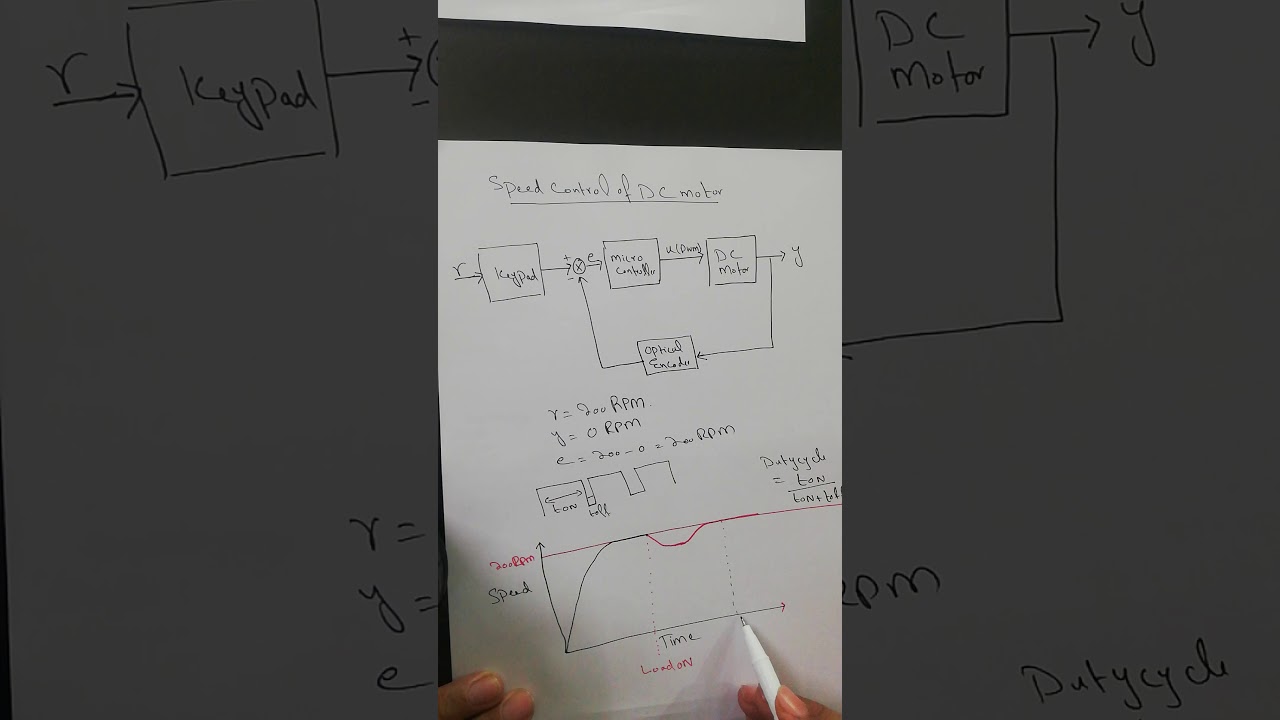 Speed Control of DC motor
r
KeyPad
+
-
e
Micro
Controller
u(Pwm)
DC
Motor
y
Optical
Encoder
r = 200 RPM.
y = 0 RPM
e = 200 - 0 = 200 RPM
tON
toff
Dutycycle
= tON
tON + toff
200 RPM
Speed
Time
Load ON
r
KeyPad
+
-
DC
Motor
y
r =
y =
e
RPM
Dutycycle